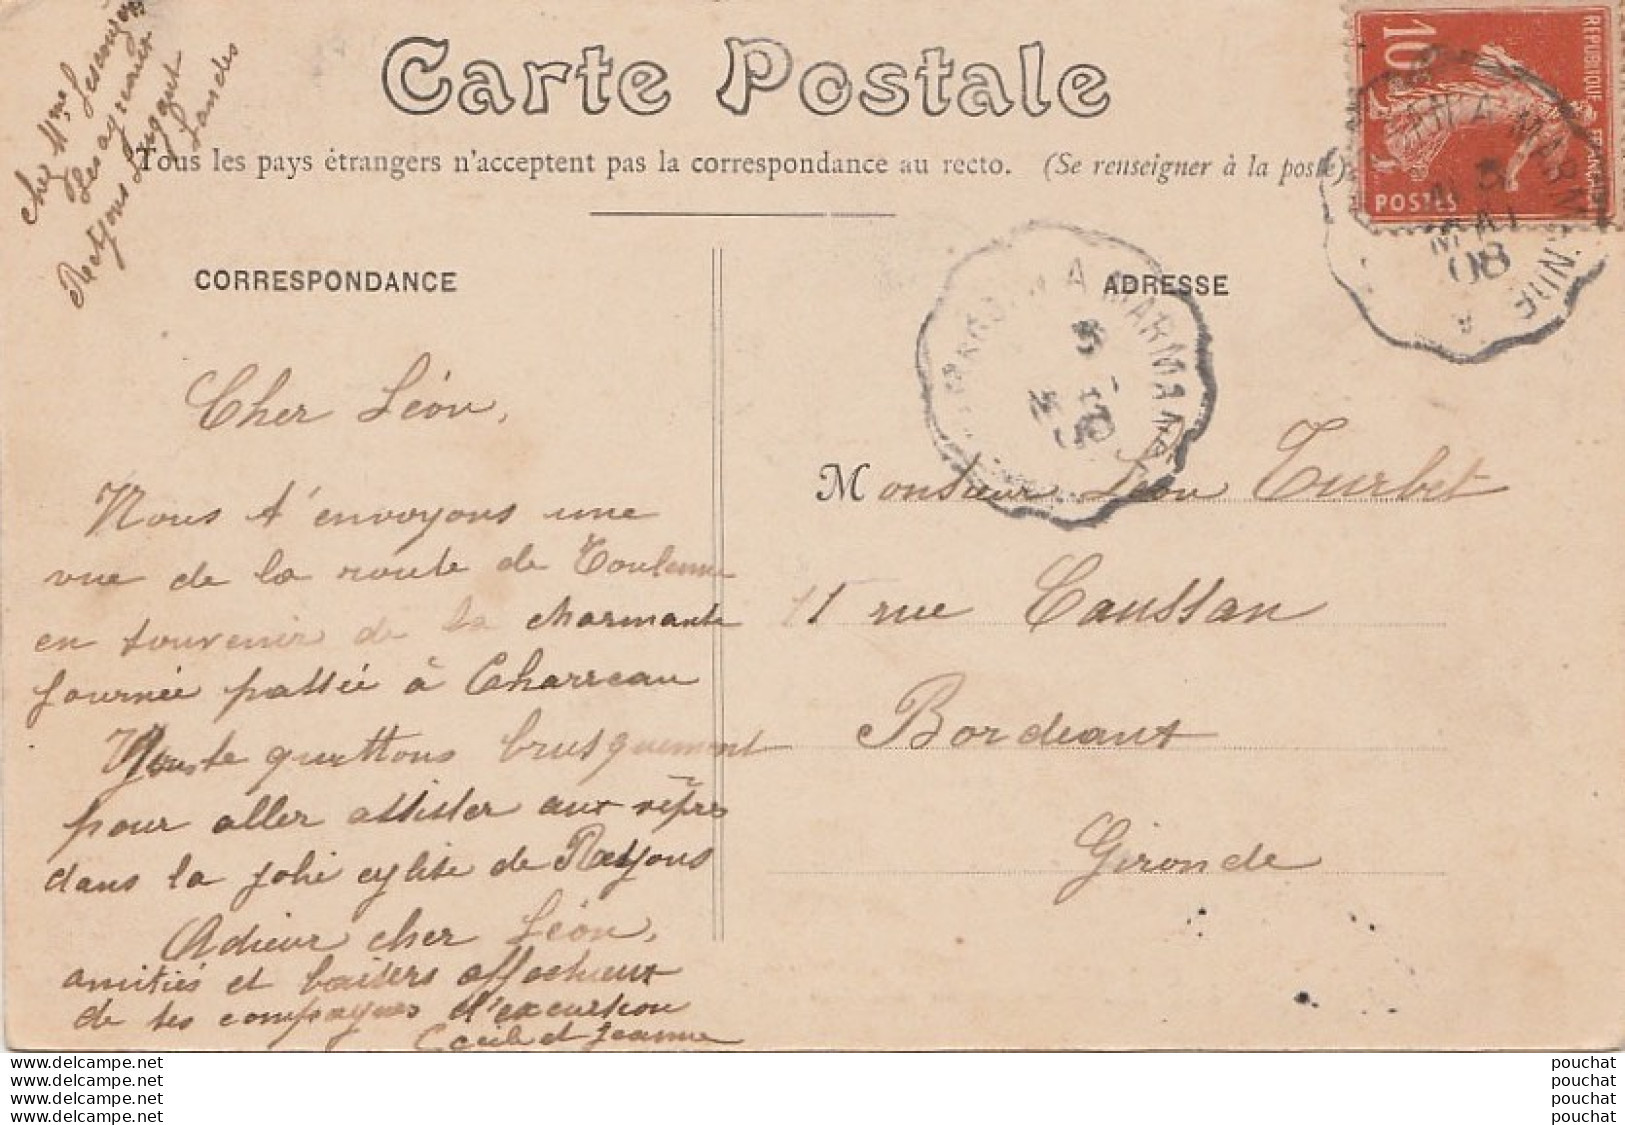 Carte Postale
Tous les pays étrangers n'acceptent pas la correspondance au recto. (Se renseigner à la poste)
chez Mme
Landes
CORRESPONDANCE
ADRESSE
REPUBLIQUE FRANÇAISE
10
POSTES
A MARMANDE
5
MAI
08
A MARMANDE
5
Cher Léon,
Nous t'envoyons une
vue de la route de Toulenne
en souvenir de la charmante
journée passée à Charreau
quittons brusquement
pour aller assister aux vêpres
dans la jolie eglise de Retjons
Adieux cher Léon,
amitiés et baisers affectueux
de tes compagnes d'excursion
Cecile et Jeanne
Monsieur Léon Turbet
11 rue Caussan
Bordeaux
Gironde
www.delcampe.net
www.delcampe.net
www.delcampe.net
www.delcampe.net
pouchat
pouchat
pouchat
pouchat